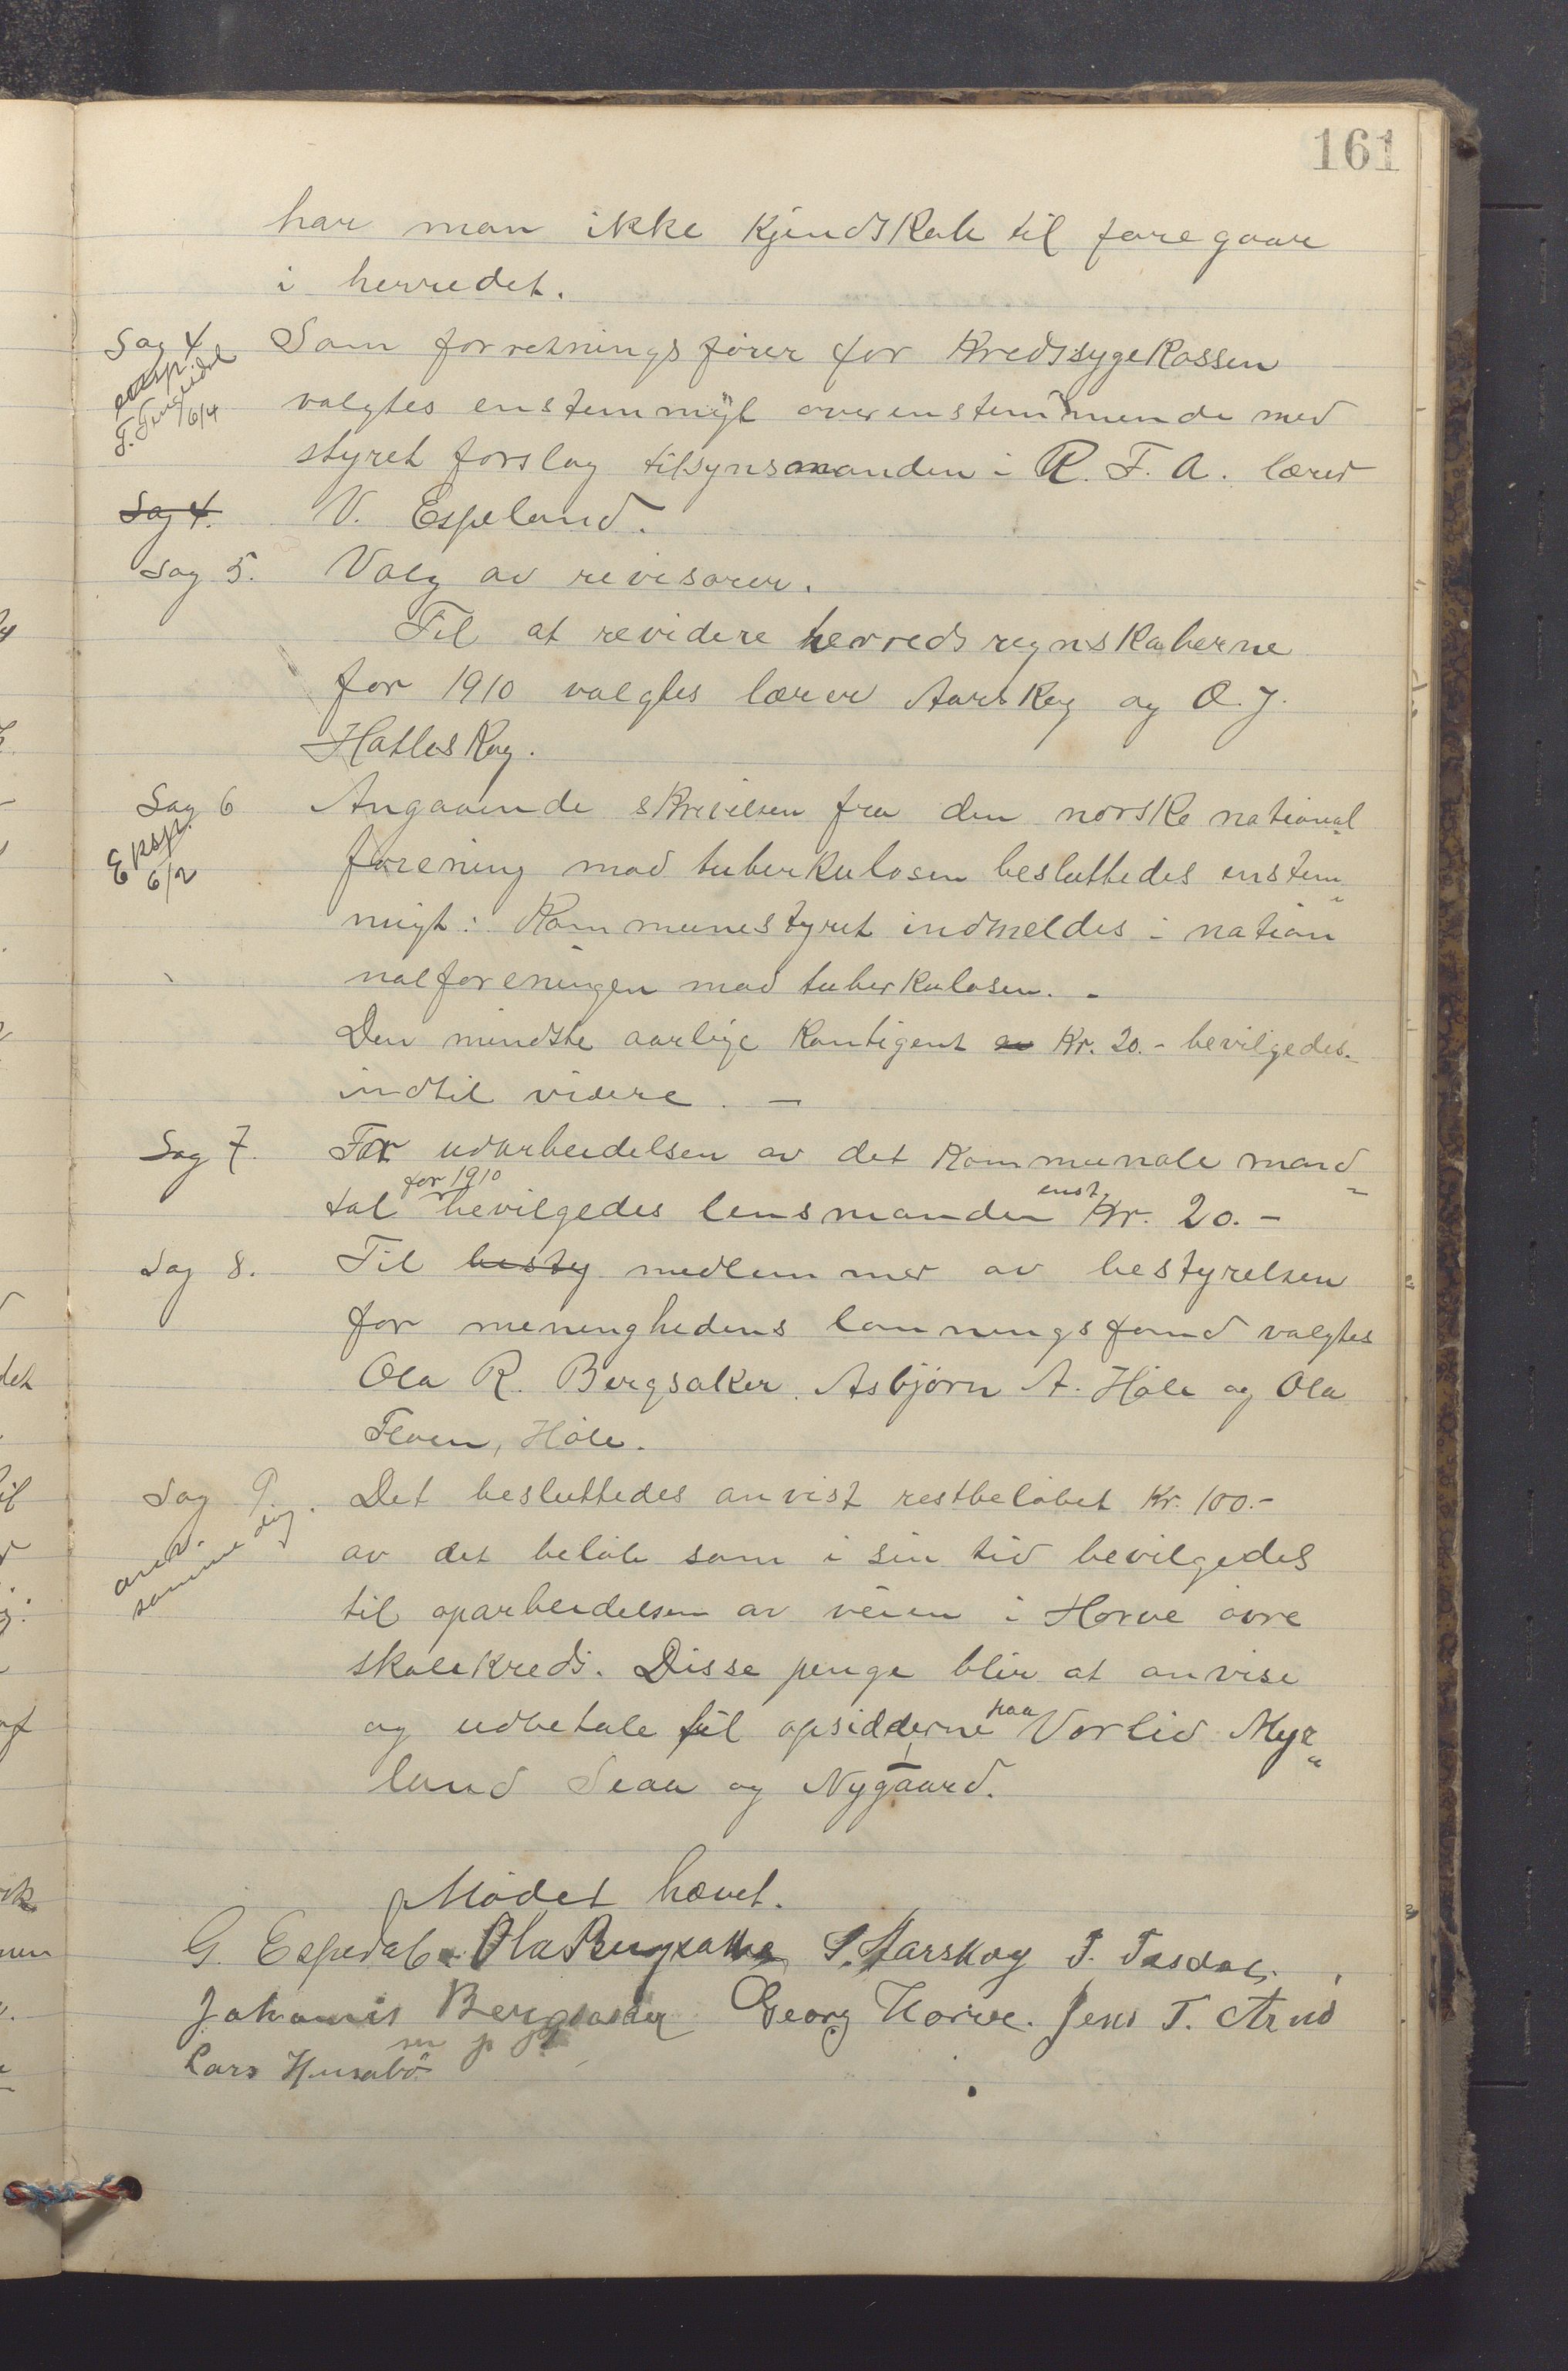 161
har man ikke kjendskab til foregaar
i herredet.
Sag 4 Som forretningsfører for kredssygekassen
exsp. 6/4
valgtes enstemmigt overenstemmende med
styret forslag tilsynsmanden i R. T. A. lærer
Sag 4. V. Espeland.
Sag 5. Valg av revisorer.
Til at revidere herredsregnskaberne
for 1910 valgtes lærer Aarskog og O. J.
Hatleskog.
Sag 6 Angaaende skrivelsen fra den norske national
Eksp. 6/2
forening mod tuberkulosen besluttedes enstem
migt: Kommunestyret indmeldes i nation
nalforeningen mod tuberkulosen. -
Den mindste aarlige kontigent av Kr. 20.- bevilgedes
indtil videre. -
Sag 7. For udarbeidelsen av det kommunale mand
tal for 1910 bevilgedes lensmanden enst. Kr. 20.-
Sag 8. Til besty medlemmer av bestyrelsen
for menenghedens lønningsfond valgtes
Ola R. Bergsaker. Asbjørn A. Høle og Ola
Tloen, Høle.
Sag 9. Det besluttedes anvist restbeløbet Kr. 100.-
anv. samme dag
av det beløb som i sin tid bevilgedes
til oparbeidelsen av veien i Horve øvre
skolekreds. Disse penge blir at anvise
og udbetale til opsidderne paa Vorlid Myr
land Seaa og Nygaard.
Mødet hævet.
G. Espedal. Ola Bergsaker S. Aarskog T. Tasdal
Johannis Bergsaker Georg Horve. Jens T. Arud
Lars Husabø